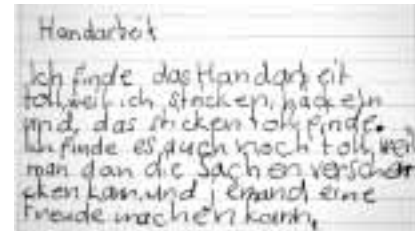 Handarbeit
Ich finde das Handarbeit
toll, weil ich stricken, häckeln
und, das sticken toll finde.
Ich finde es auch noch toll, weil
man dan die Sachen verschen
cken kann, und jemand eine
Freude machen kann,